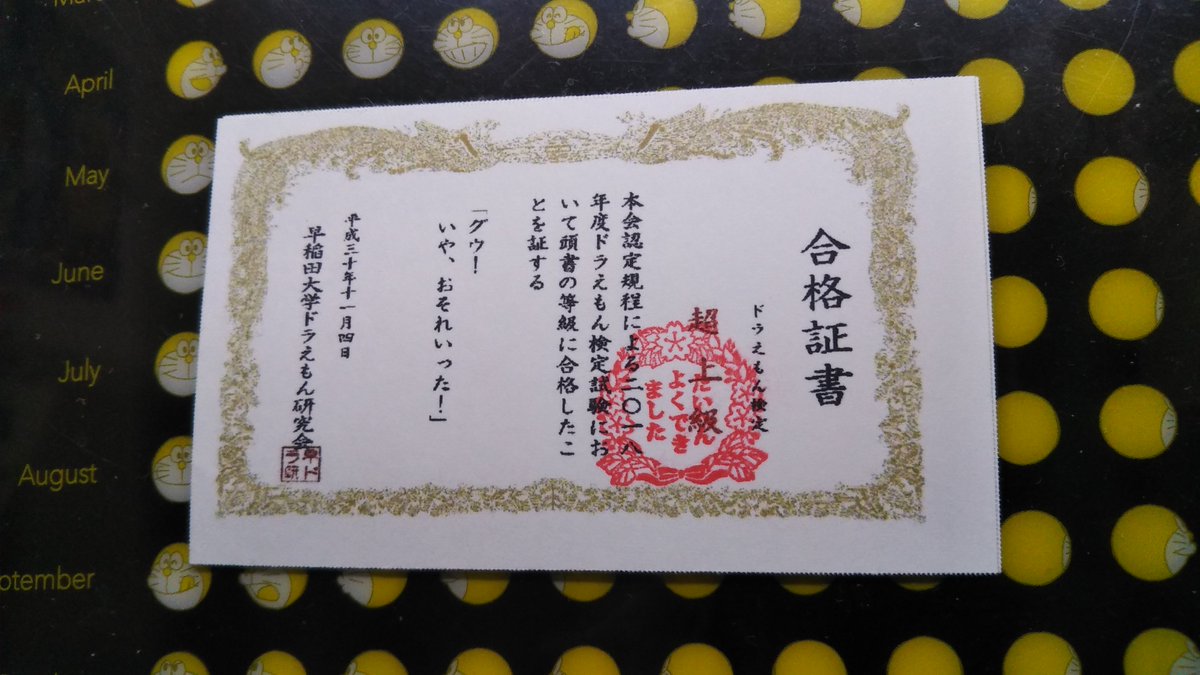 合格証書
ドラえもん検定
超上級
たいへん
よくでき
ました
本会認定規程による二〇一八
年度ドラえもん検定試験にお
いて頭書の等級に合格したこ
とを証する
「グウ！
いや、おそれいった！」
平成三十年十一月四日
早稲田大学ドラえもん研究会
早ド
ラ研
April
May
June
July
August
ptember